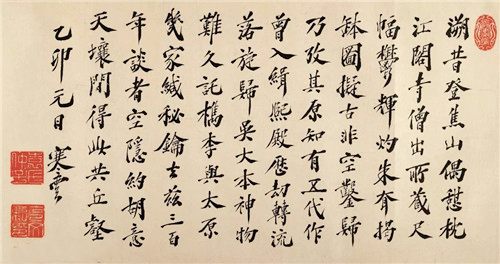 溯昔登焦山偶憩枕
江閣寺僧出所藏尺
幅鬱輝灼朱揭
缽圖擬古非空鑿歸
乃攷其原知有五代作
曾入緝熙殿歷劫轉流
落旋歸吳大本神物
難久託檇李與太原
幾家緘秘鑰去茲三百
年談者空隱約胡意
天壤閒得此共丘壑
乙卯元日 寒雲